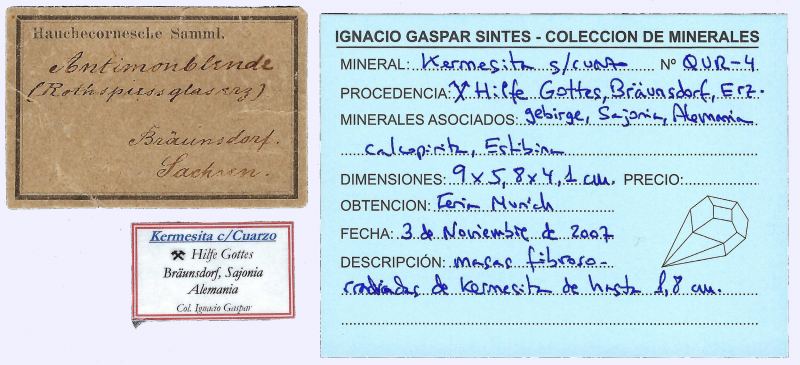 Hauchecornesche Samml.
Antimonblende
(Rothspiessglaserz)
Bräunsdorf.
Sachsen.
Kermesita c/Cuarzo
⚒ Hilfe Gottes
Bräunsdorf, Sajonia
Alemania
Col. Ignacio Gaspar
IGNACIO GASPAR SINTES - COLECCION DE MINERALES
MINERAL: Kermesita s/cuarzo Nº QUR-4
PROCEDENCIA: Hilfe Gottes, Bräunsdorf, Erz-
MINERALES ASOCIADOS: gebirge, Sajonia, Alemania
calcopirita, Estibina
DIMENSIONES: 9 x 5,8 x 4,1 cm. PRECIO:
OBTENCION: Feria Munich
FECHA: 3 de Noviembre de 2007
DESCRIPCIÓN: masas fibroso-
radiadas de kermesita de hasta 1,8 cm.